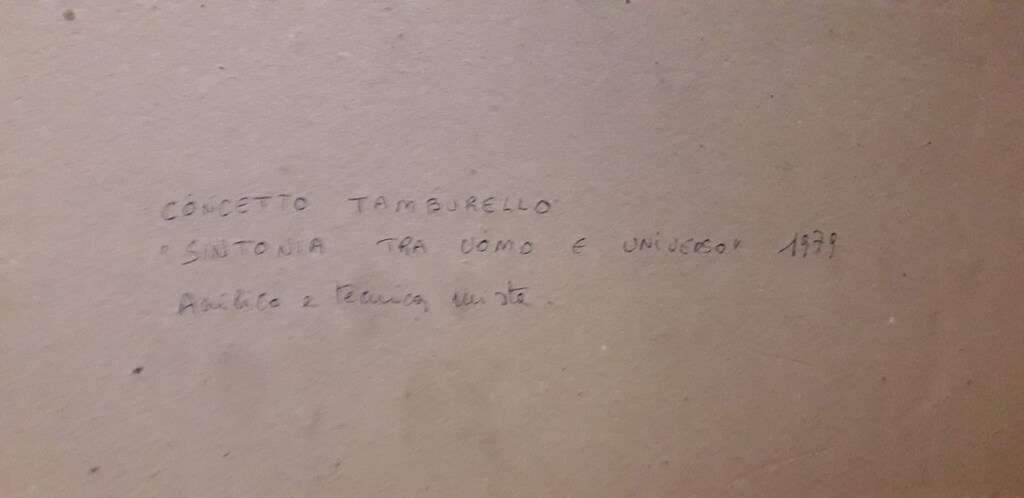 CONCETTO TAMBURELLO
"SINTONIA TRA UOMO E UNIVERSO" 1979
Acrilico e tecnica mista.